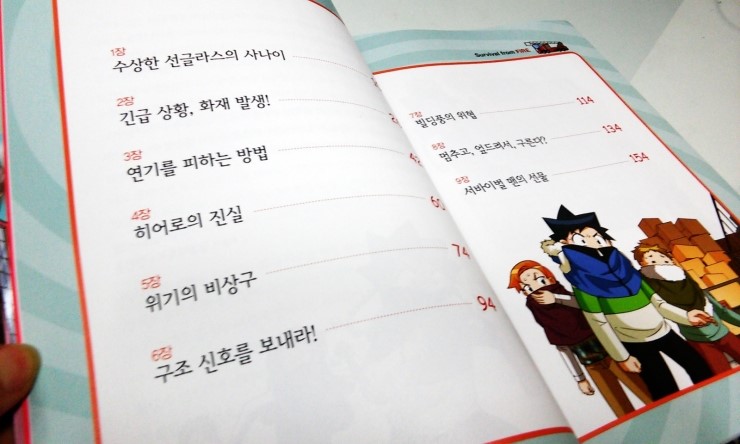 1장
수상한 선글라스의 사나이
2장
긴급 상황, 화재 발생!
3장
연기를 피하는 방법
4장
히어로의 진실
5장
위기의 비상구 74
6장
구조 신호를 보내라! 94
Survival from FIRE
7장
빌딩풍의 위협 114
8장
멈추고, 엎드려서, 구른다? 134
9장
서바이벌 맨의 선물 154